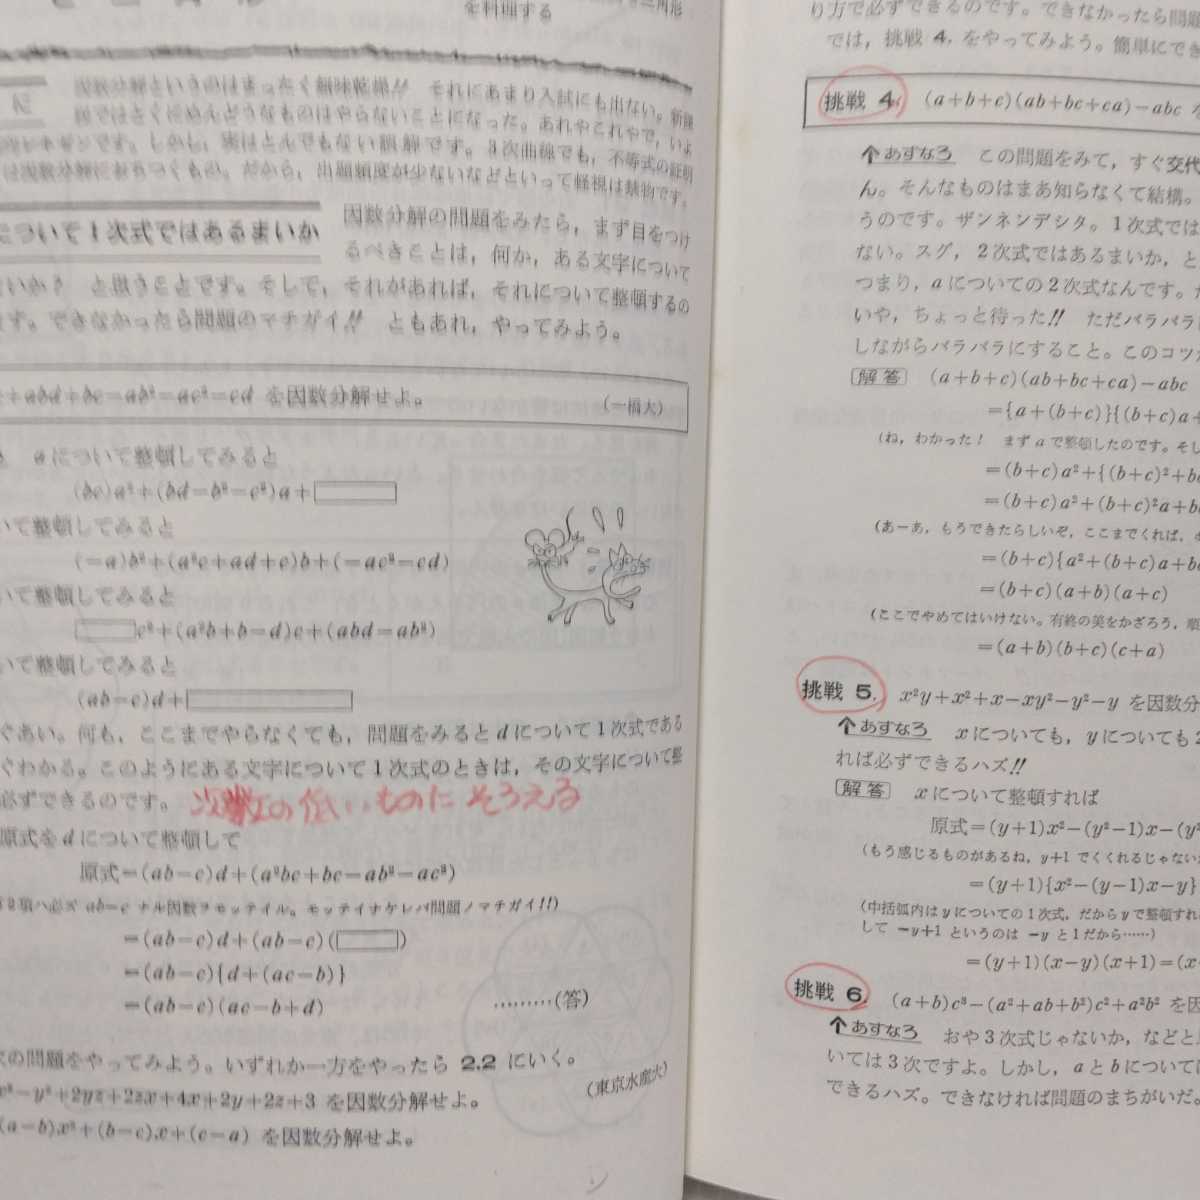 を料理する
因数分解というのはまったく無味乾燥!! それにあまり入試にも出ない。
ことになった。あれやこれやで，いよ
です。しかし，実はとんでもない誤解です。3次曲線でも，不等式の証明
だから，出題頻度が少ないなどといって軽視は禁物です。
について1次式ではあるまいか
因数分解の問題をみたら，まず目をつけ
るべきことは，何か，ある文字について
と思うことです。そして，それがあれば，それについて整頓するの
です。できなかったら問題のマチガイ!! ともあれ，やってみよう。
+abd+bc−ab²−ac²−cd を因数分解せよ。 (一橋大)
aについて整頓してみると
(bc)a²+(bd−b²−c²)a+
いて整頓してみると
(−a)b²+(a²c+ad+c)b+(−ac²−cd)
いて整頓してみると
c²+(a²b+b−d)c+(abd−ab²)
いて整頓してみると
(ab−c)d+
ぐあい。何も，ここまでやらなくても，問題をみるとdについて1次式である
ぐわかる。このようにある文字について1次式のときは，その文字について整
必ずできるのです。 次数の低いものにそろえる
原式をdについて整頓して
原式=(ab−c)d+(a²bc+bc−ab²−ac²)
2項ハ必ズ ab−c ナル因数ヲモッテイル。モッテイナケレバ問題ノマチガイ!!)
=(ab−c)d+(ab−c)( )
=(ab−c){d+(ac−b)}
=(ab−c)(ac−b+d) ………(答)
次の問題をやってみよう。いずれか一方をやったら 2.2 にいく。
x²−y²+2yz+2zx+4x+2y+2z+3 を因数分解せよ。 (東京水産大)
(a−b)x²+(b−c)x+(c−a) を因数分解せよ。
り方で必ずできるのです。できなかったら問題
では，挑戦 4. をやってみよう。簡単にでき
挑戦 4. (a+b+c)(ab+bc+ca)−abc
あすなろ この問題をみて，すぐ交代
ん。そんなものはまあ知らなくて結構。
うのです。ザンネンデシタ。1次式では
ない。スグ，2次式ではあるまいか，と
つまり，aについての2次式なんです。
いや，ちょっと待った!! ただバラバラ
しながらバラバラにすること。このコツ
解答 (a+b+c)(ab+bc+ca)−abc
={a+(b+c)}{(b+c)a+
(ね，わかった! まずaで整頓したのです。そし
=(b+c)a²+{(b+c)²+bc
=(b+c)a²+(b+c)²a+bc
(あーあ，もうできたらしいぞ，ここまでくれば，
=(b+c){a²+(b+c)a+bc
=(b+c)(a+b)(a+c)
(ここでやめてはいけない。有終の美をかざろう，順
=(a+b)(b+c)(c+a)
挑戦 5. x²y+x²+x−xy²−y²−y を因数分
あすなろ xについても，yについても2
れば必ずできるハズ!!
解答 xについて整頓すれば
原式=(y+1)x²−(y²−1)x−(y²
(もう感じるものがあるね，y+1 でくくれるじゃない
=(y+1){x²−(y−1)x−y}
(中括弧内はyについての1次式，だからyで整頓すれ
して −y+1 というのは −y と1だから……)
=(y+1)(x−y)(x+1)=(x
挑戦 6. (a+b)c³−(a²+ab+b²)c²+a²b² を因
あすなろ おや3次式じゃないか，などと
いては3次ですよ。しかし，aとbについては
できるハズ。できなければ問題のまちがいだ。